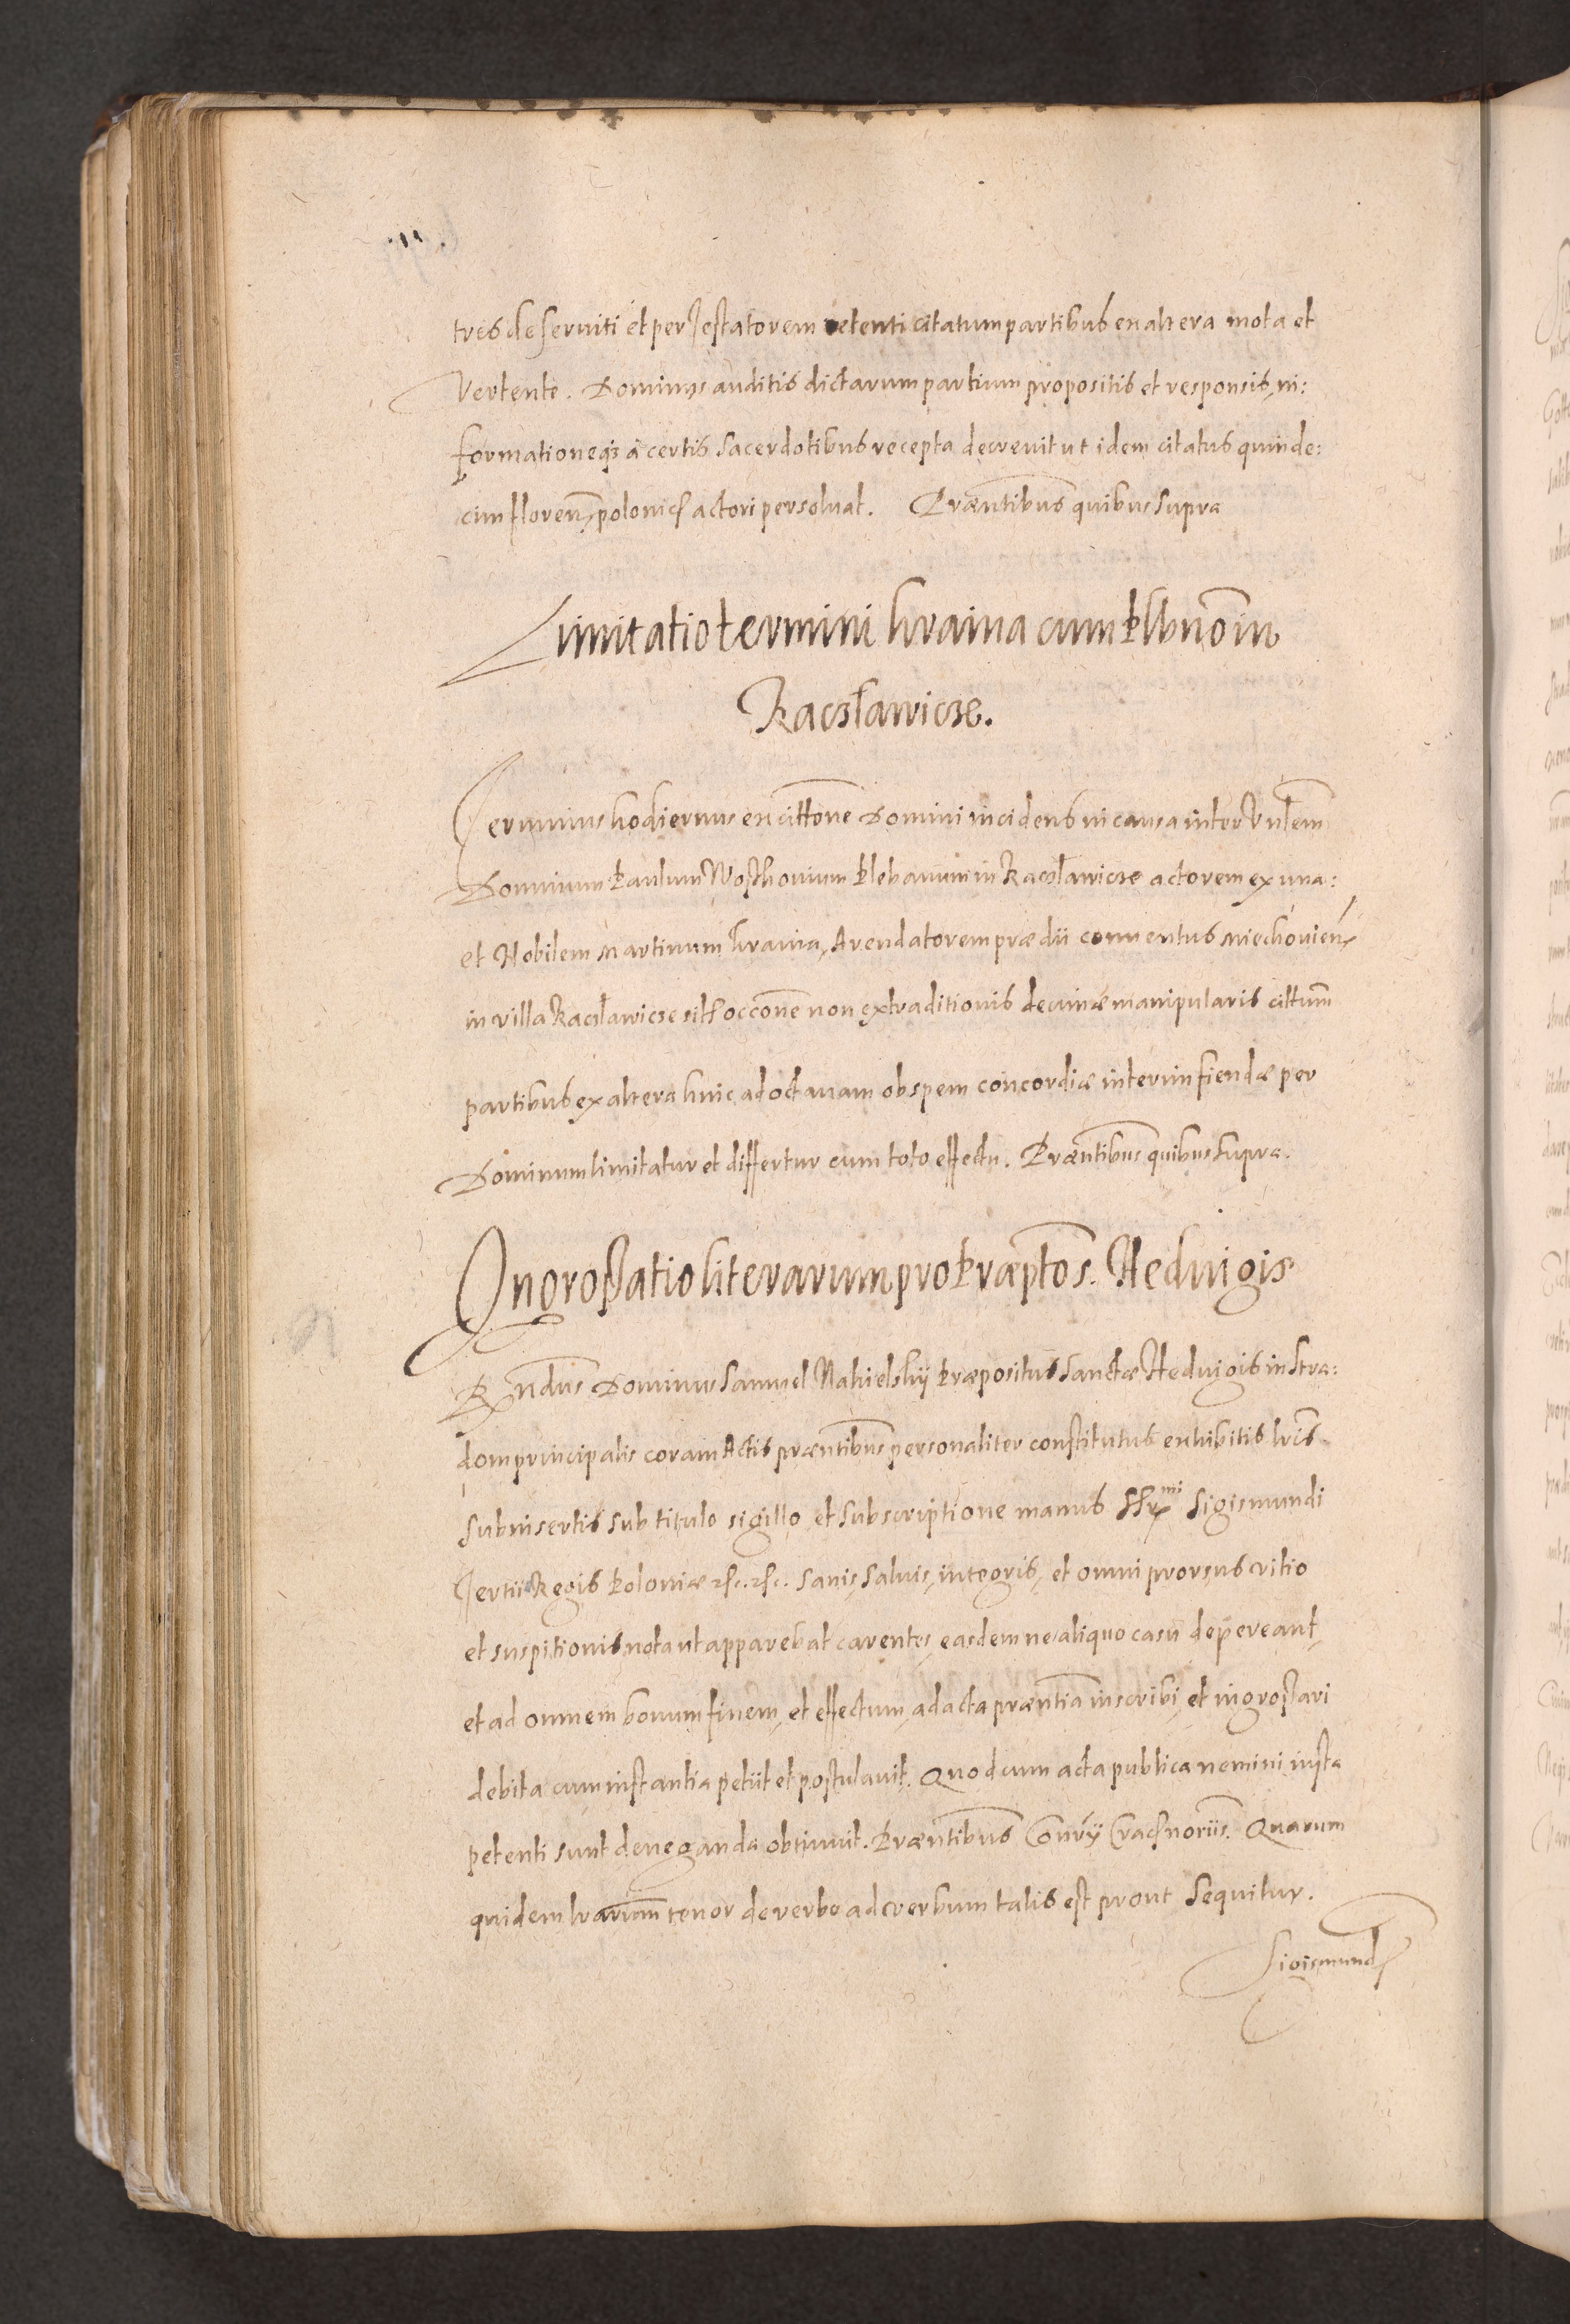 tres deserviti et per Testatorem retenti citatum partibus ex altera mota et
Vertente. Dominus auditis dictarum partium propositis et responsis, in:
formationeq3 à certis Sacerdotibus recepta decrevit ut idem citatus quinde:
cim floren, polonicał actori persoluat. Præntibus quibus supra
Limitatio termini hraina cum Plbno in
Raczławicze.
Terminus hodiernus ex cittone Domini incidens in causa inter Vnlem
Dominum Paulum Plebanum in Raczławicze actorem ex una:
et Nobilem Martinum hraina, Arendatorem prædii conventus Miechovien,
in villa Raczławicze siti occone non extraditionis decimæ manipularis cittum
partibus ex altera huic ad octavam ob spem concordiæ interim fiendæ per
Dominum limitatur et differtur cum toto effectu. Præntibus quibus supra.
Ingrossatio literarum pro Præpto S. Hedvigis
Rndus Dominus Samuel Nakielskij Præpositus Sanctæ Hedvigis in Stra:
dom principalis coram Actis præntibus personaliter constitutus exhibitis lris
subinsertis sub titulo sigillo et subscriptione manus Sermi Sigismundi
Tertii Regis Poloniæ etc. etc. sanis, salvis, integris, et omni prorsus vitio
et suspitionis nota ut apparebat carentes, easdem ne aliquo casu depereant,
et ad omnem bonum finem, et effectum, ad acta præntia inscribi, et ingrossari
debita cum instantia petiit et postulavit. Quod cum acta publica nemini iusta
petenti sunt deneganda obtinuit. Præntibus Quarum
quidem lrarum tenor de verbo ad verbum talis est prout sequitur.
Sigismund,